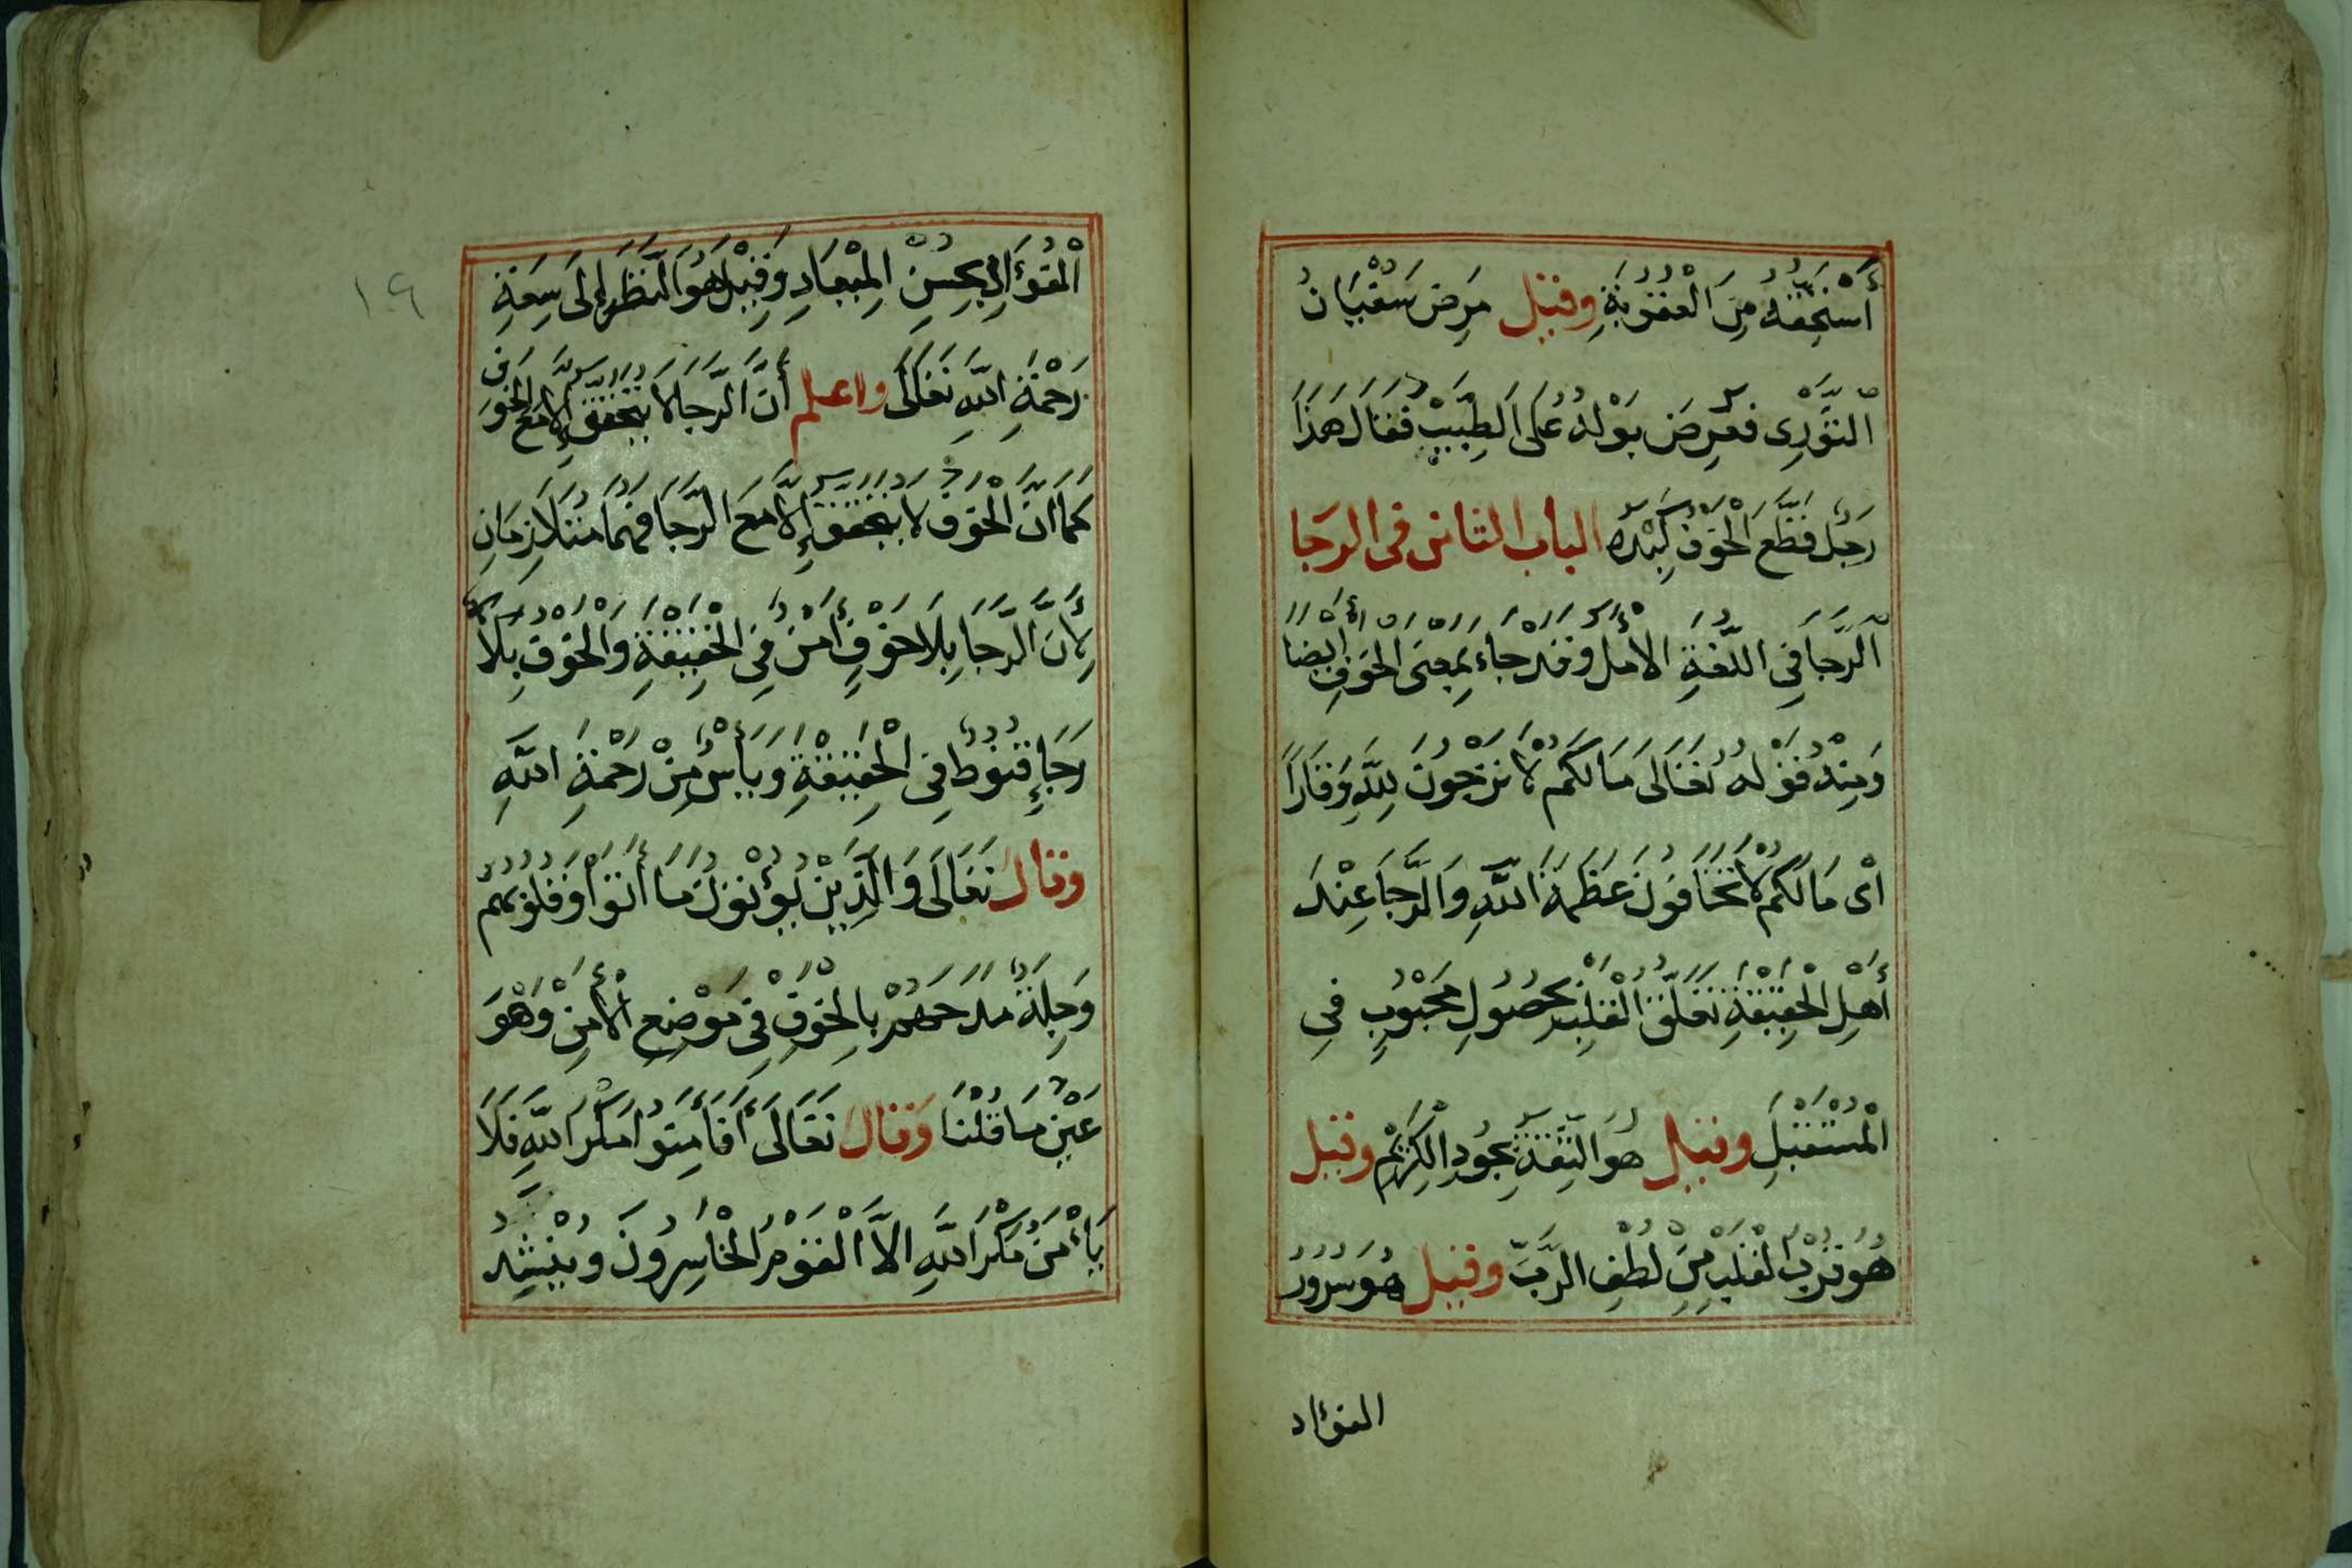 أَسْتَحِقُّهُ مِنَ الْعُقُوبَةِ وقيل مَرِضَ سُفْيَانُ
الثَّوْرِى فعُرِضَ بَوْلُهُ عَلَى الطَّبِيبِ فَقَالَ هَذَا
رَجُلٌ قَطَّعَ الْخَوْفُ كَبِدَهُ الباب الثانى فى الرجا
الرَّجَا فِي اللُّغَةِ الْأَمَلُ وَقَدْ جَاءَ بِمَعْنَى الْخَوْفِ أَيْضًا
وَمِنْهُ قَوْلُهُ تَعَالَى مَا لَكُمْ لَا تَرْجُونَ لِلَّهِ وَقَارًا
أَىْ مَا لَكُمْ لَا تَخَافُونَ عَظَمَةَ اللَّهِ وَالرَّجَا عِنْدَ
أَهْلِ الْحَقِيقَةِ تَعَلُّقُ الْقَلْبِ بِحُصُولِ مَحْبُوبٍ فِي
الْمُسْتَقْبَلِ وقيل هُوَ الثِّقَةُ بِجُودِ الْكَرِيمِ وقيل
هُوَ قُرْبُ الْقَلْبِ مِنْ لُطْفِ الرَّبِّ وقيل هُوَ سُرُورُ
الفؤاد
١٩
الْفُؤَادِ بِحُسْنِ الْمِيعَادِ وَقِيلَ هُوَ النَّظَرُ إِلَى سَعَةِ
رَحْمَةِ اللَّهِ تَعَالَى واعلم أَنَّ الرَّجَا لَا يَتَحَقَّقُ إِلَّا مَعَ الْخَوْفِ
كَمَا أَنَّ الْخَوْفَ لَا يَتَحَقَّقُ إِلَّا مَعَ الرَّجَا فَهُمَا مُتَلَازِمَانِ
لِأَنَّ الرَّجَا بِلَا خَوْفٍ أَمْنٌ فِي الْحَقِيقَةِ وَالْخَوْفَ بِلَا
رَجَاءٍ قُنُوطٌ فِي الْحَقِيقَةِ وَيَأْسٌ مِنْ رَحْمَةِ اللَّهِ
وقال تَعَالَى وَالَّذِينَ يُؤْتُونَ مَا أَتَوْا وَقُلُوبُهُمْ
وَجِلَةٌ مدحهم بِالْخَوْفِ فِي مَوْضِعِ الْأَمْنِ وَهُوَ
عَيْنُ مَا قُلْنَا وَقَالَ تَعَالَى أَفَأَمِنُوا مَكْرَ اللَّهِ فَلَا
يَأْمَنُ مَكْرَ اللَّهِ إِلَّا الْقَوْمُ الْخَاسِرُونَ وَيُنْشِدُ